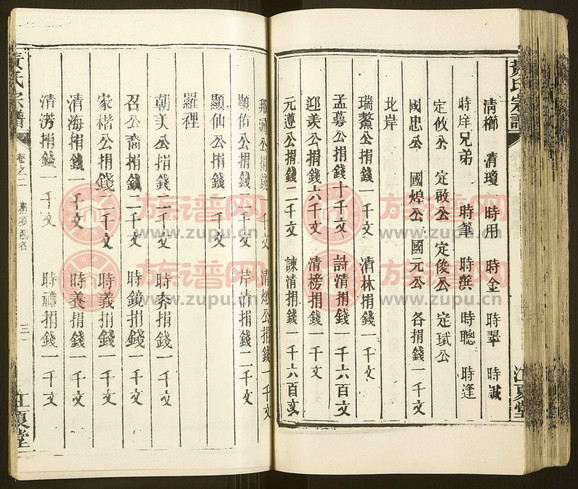 黃氏宗譜
清櫛 清瓊 時用 時金 時翠 時誠
時庠兄弟 時筆 時濱 時聰 時逢
定攸公 定敢公 定俊公 定斌公
國忠公 國煌公 國元公 各捐錢一千文
北岸
瑞鰲公捐錢一千文 清林捐錢一千文
孟募公捐錢十千文 詩清捐錢一千六百文
迎美公捐錢六千文 清榜捐錢一千文
元遵公捐錢二千文 諫清捐錢一千六百文
江夏堂
公捐錢 千文 清 公捐錢一千文
顯佑公捐錢 千文 芹清捐錢二千文
顯仙公捐錢 千文
羅裡
朝美公捐錢一千文 時泰捐錢一千文
召公裔捐錢二千文 時鏡捐錢一千文
家楷公捐錢一千文 時義捐錢一千文
清海捐錢 千文 時養捐錢一千文
清湾捐錢一千文 時 捐錢一千文
黃氏宗譜
卷之二
江夏堂
族谱网
www.zupu.cn
族谱网
www.zupu.cn
族谱网
www.zupu.cn
族谱网
www.zupu.cn